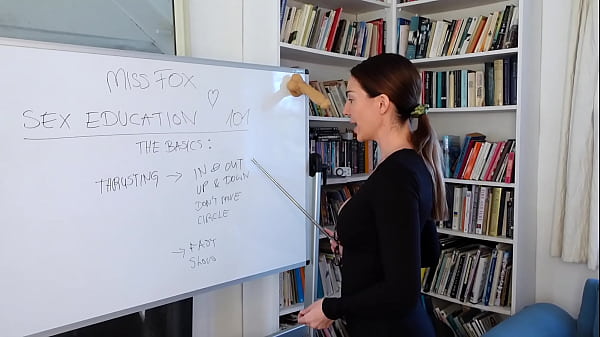 MISS FOX
SEX EDUCATION 101
THE BASICS:
THRUSTING → IN & OUT
UP & DOWN
DON'T MOVE
CIRCLE
→ FAST
SLOW